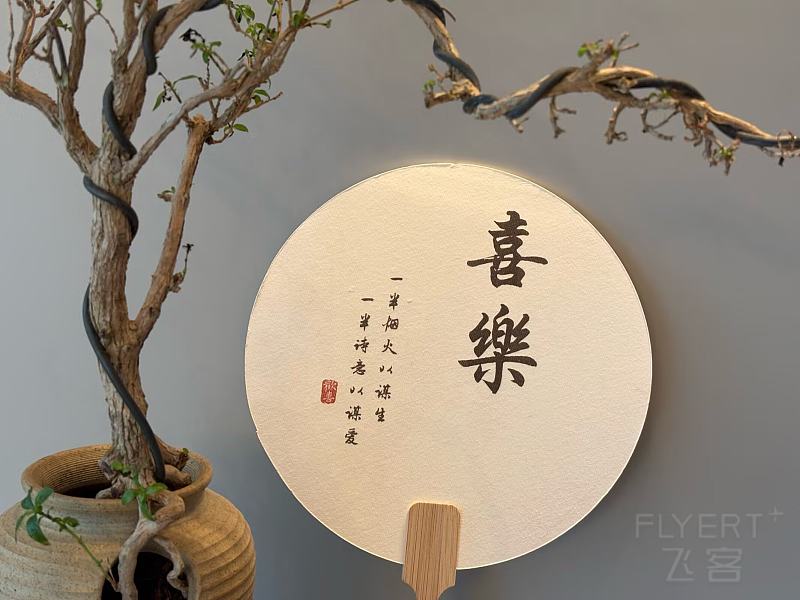 喜樂
一半烟火以谋生
一半诗意以谋爱
歡喜
FLYERT+
飞客